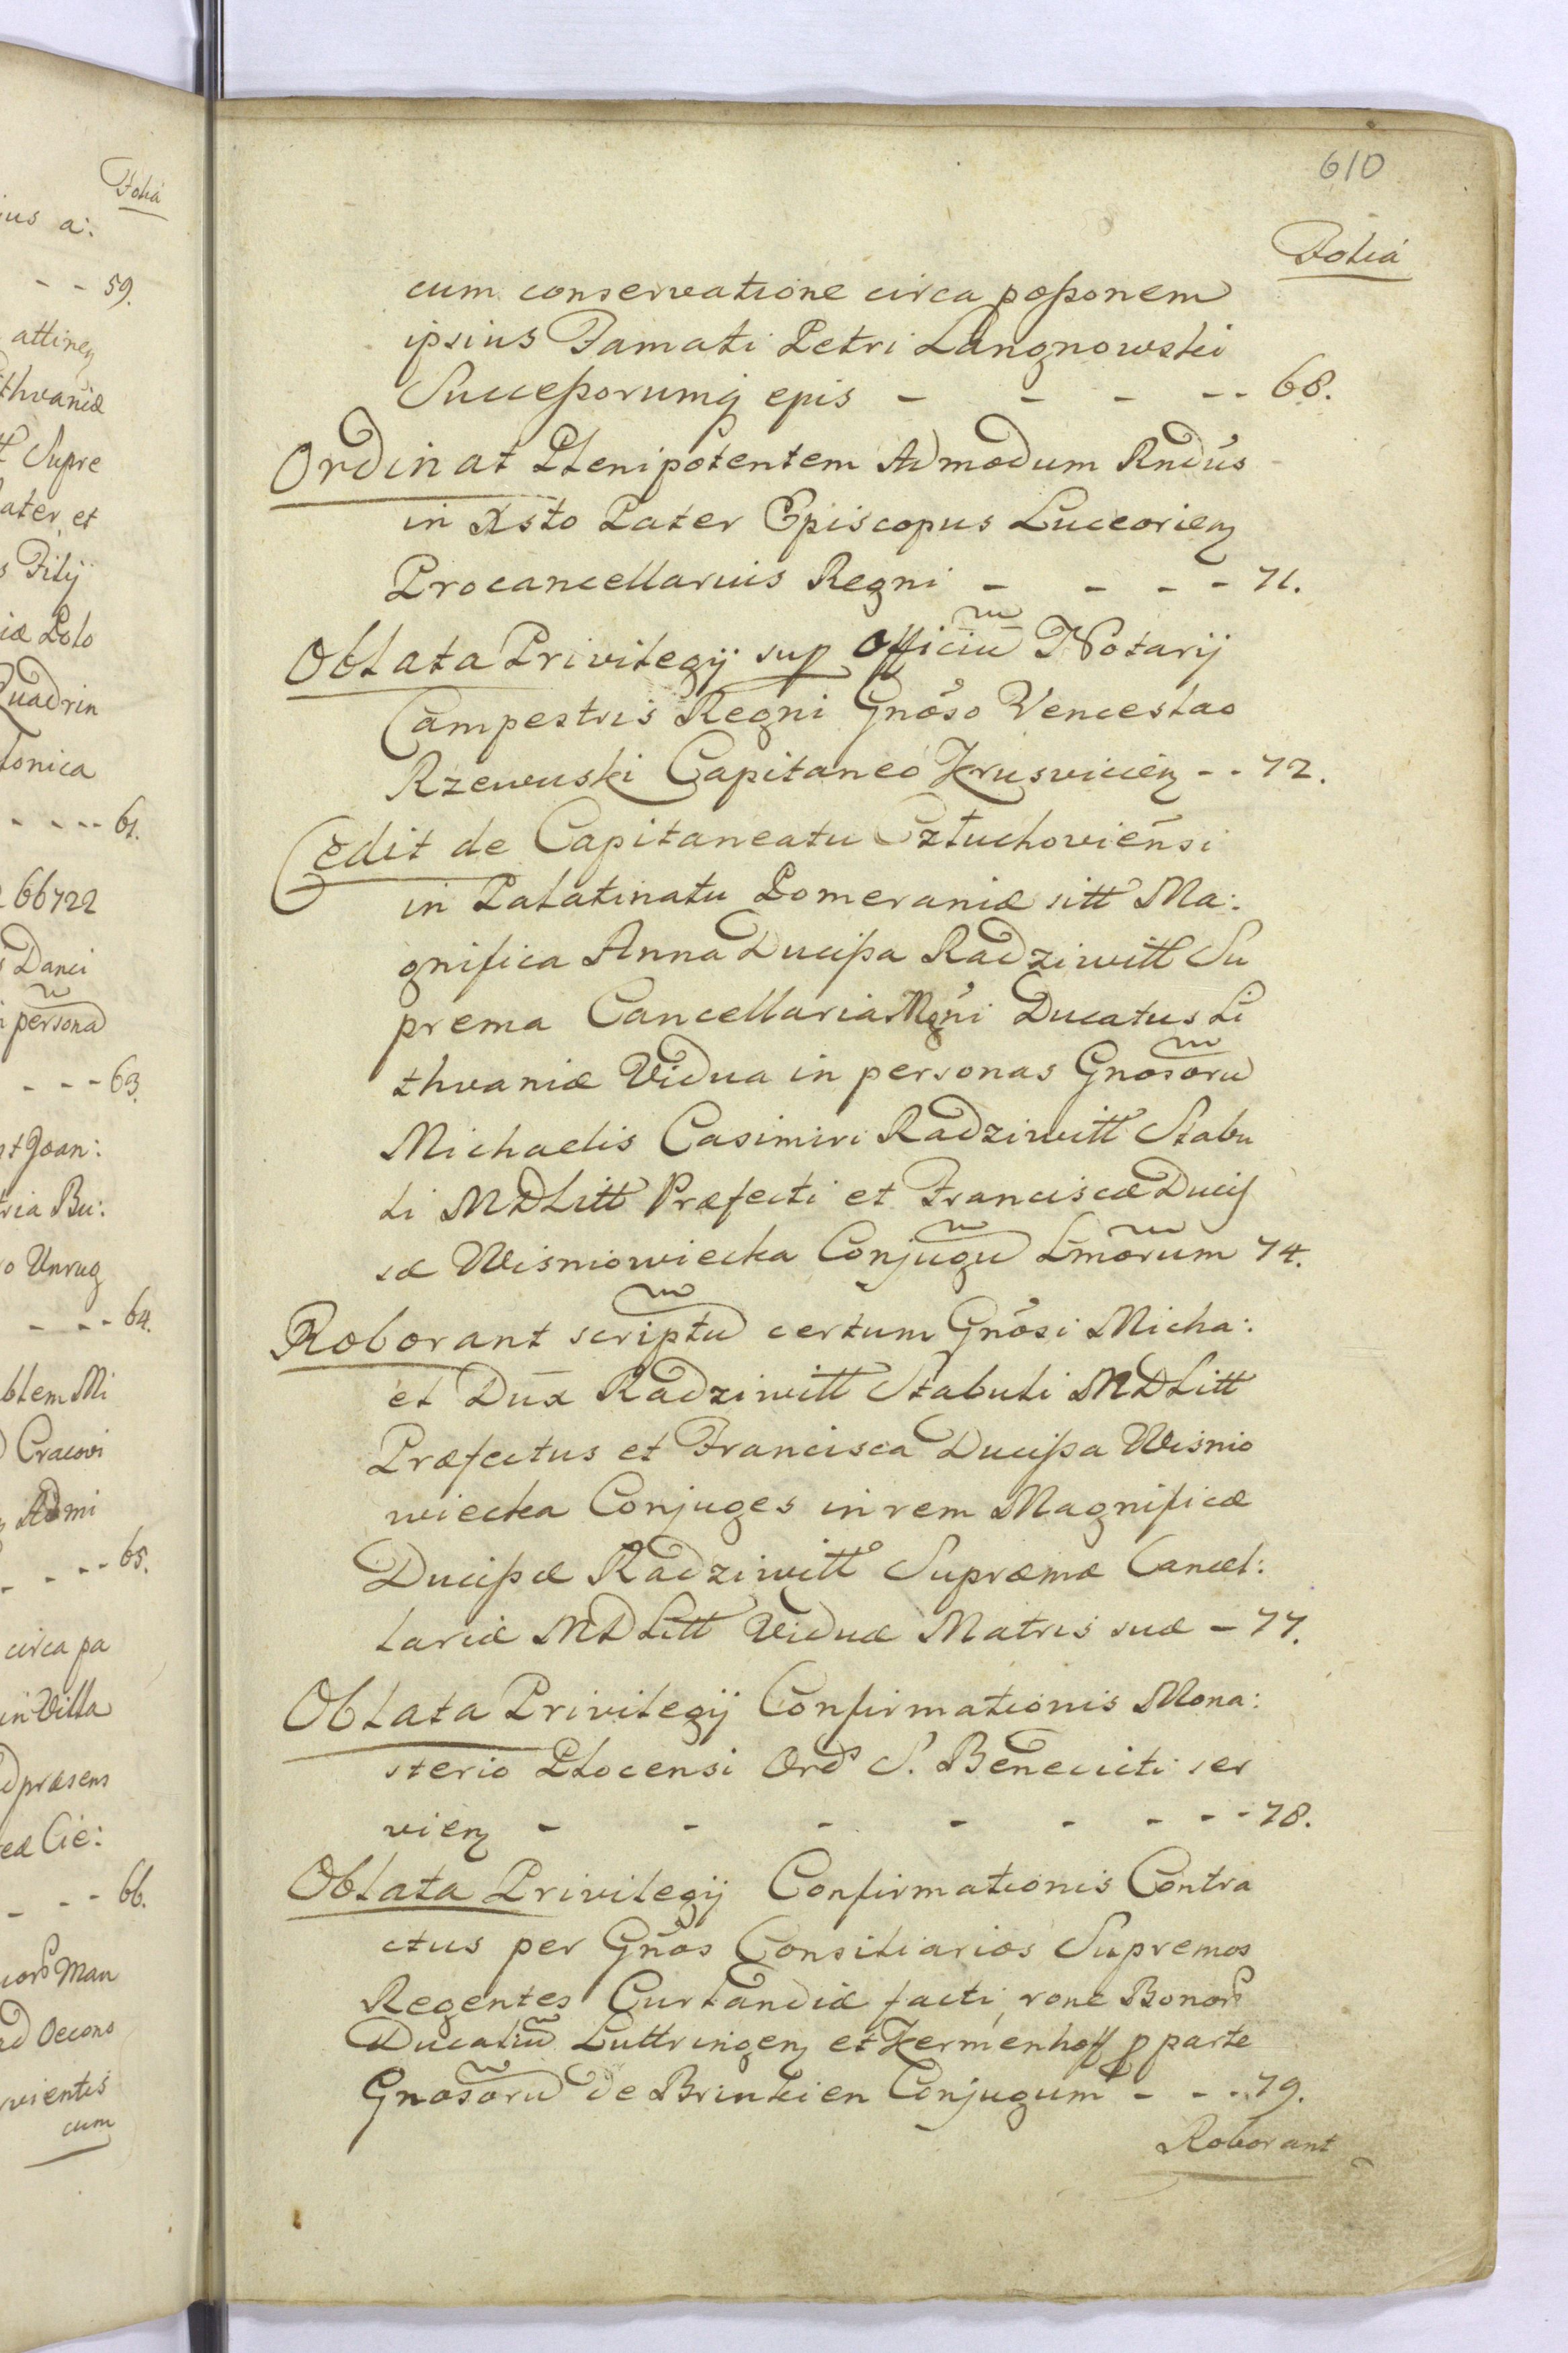 Folia
ius a:
- - 59.
attineƞ
thvaniæ
tt Supre
ater et
s Filij
iæ Polo
Quadrin
lonica
- - - - 61.
66722
s Danci
persona
- - - 63.
Joan:
ria Bu:
o Unrug
- - - 64.
blem Mi
Cracovi
Admi
- - - - 65.
circa pa
in Villa
præsens
eæ Cie:
- - 66.
Man
ad Oecono
vientis
cum
610
Folia
cum conservatione circa poßonem
ipsius Famati Petri Langnowski
Succeßorumq epis - - - - - 68.
Ordinat Plenipotentem Admodum Rndus
in Xsto Pater Episcopus Luceorieƞ
Procancellarius Regni - - - - 71.
Oblata Privilegij sup Officiũ Notarij
Campestris Regni Gnõso Venceslao
Rzewuski Capitaneo Krusvicieƞ - - 72.
Cedit de Capitaneatu Cztuchoviẽnsi
in Palatinatu Pomeraniæ sitt Ma:
gnifica Anna Ducißa Radziwitt Su
prema Cancellaria Mgni Ducatus Li
thvaniæ Vidua in personas Gnosorũ
Michaelis Casimiri Radziwitt Stabu
li MDLitt Præfecti et Franciscæ Duciß
sæ Wisniowiecka Conjugũ Lmõrum 74.
Roborant scriptũ certum Gnõsi Micha:
el Dũx Radziwitt Stabuli MDLitt
Præfectus et Francisca Ducißa Wisnio
wiecka Conjuges in rem Magnificæ
Ducißæ Radziwitt Supræmæ Cancel:
lariæ MDLitt Viduæ Matris suæ - 77.
Oblata Privilegij Confirmationis Mona:
sterio Plocensi Ord S. Benedicti ser
vieƞ - - - - - - - - 78.
Oblata Privilegij Confirmationis Contra
ctus per Gños Consiliarios Supremos
Regentes Curlandiæ facti rone Bonor
Ducaliũ Luttringeƞ et Kermenhoff p parte
Gnosorũ de Brinkien Conjugum - - - 79.
Roborant